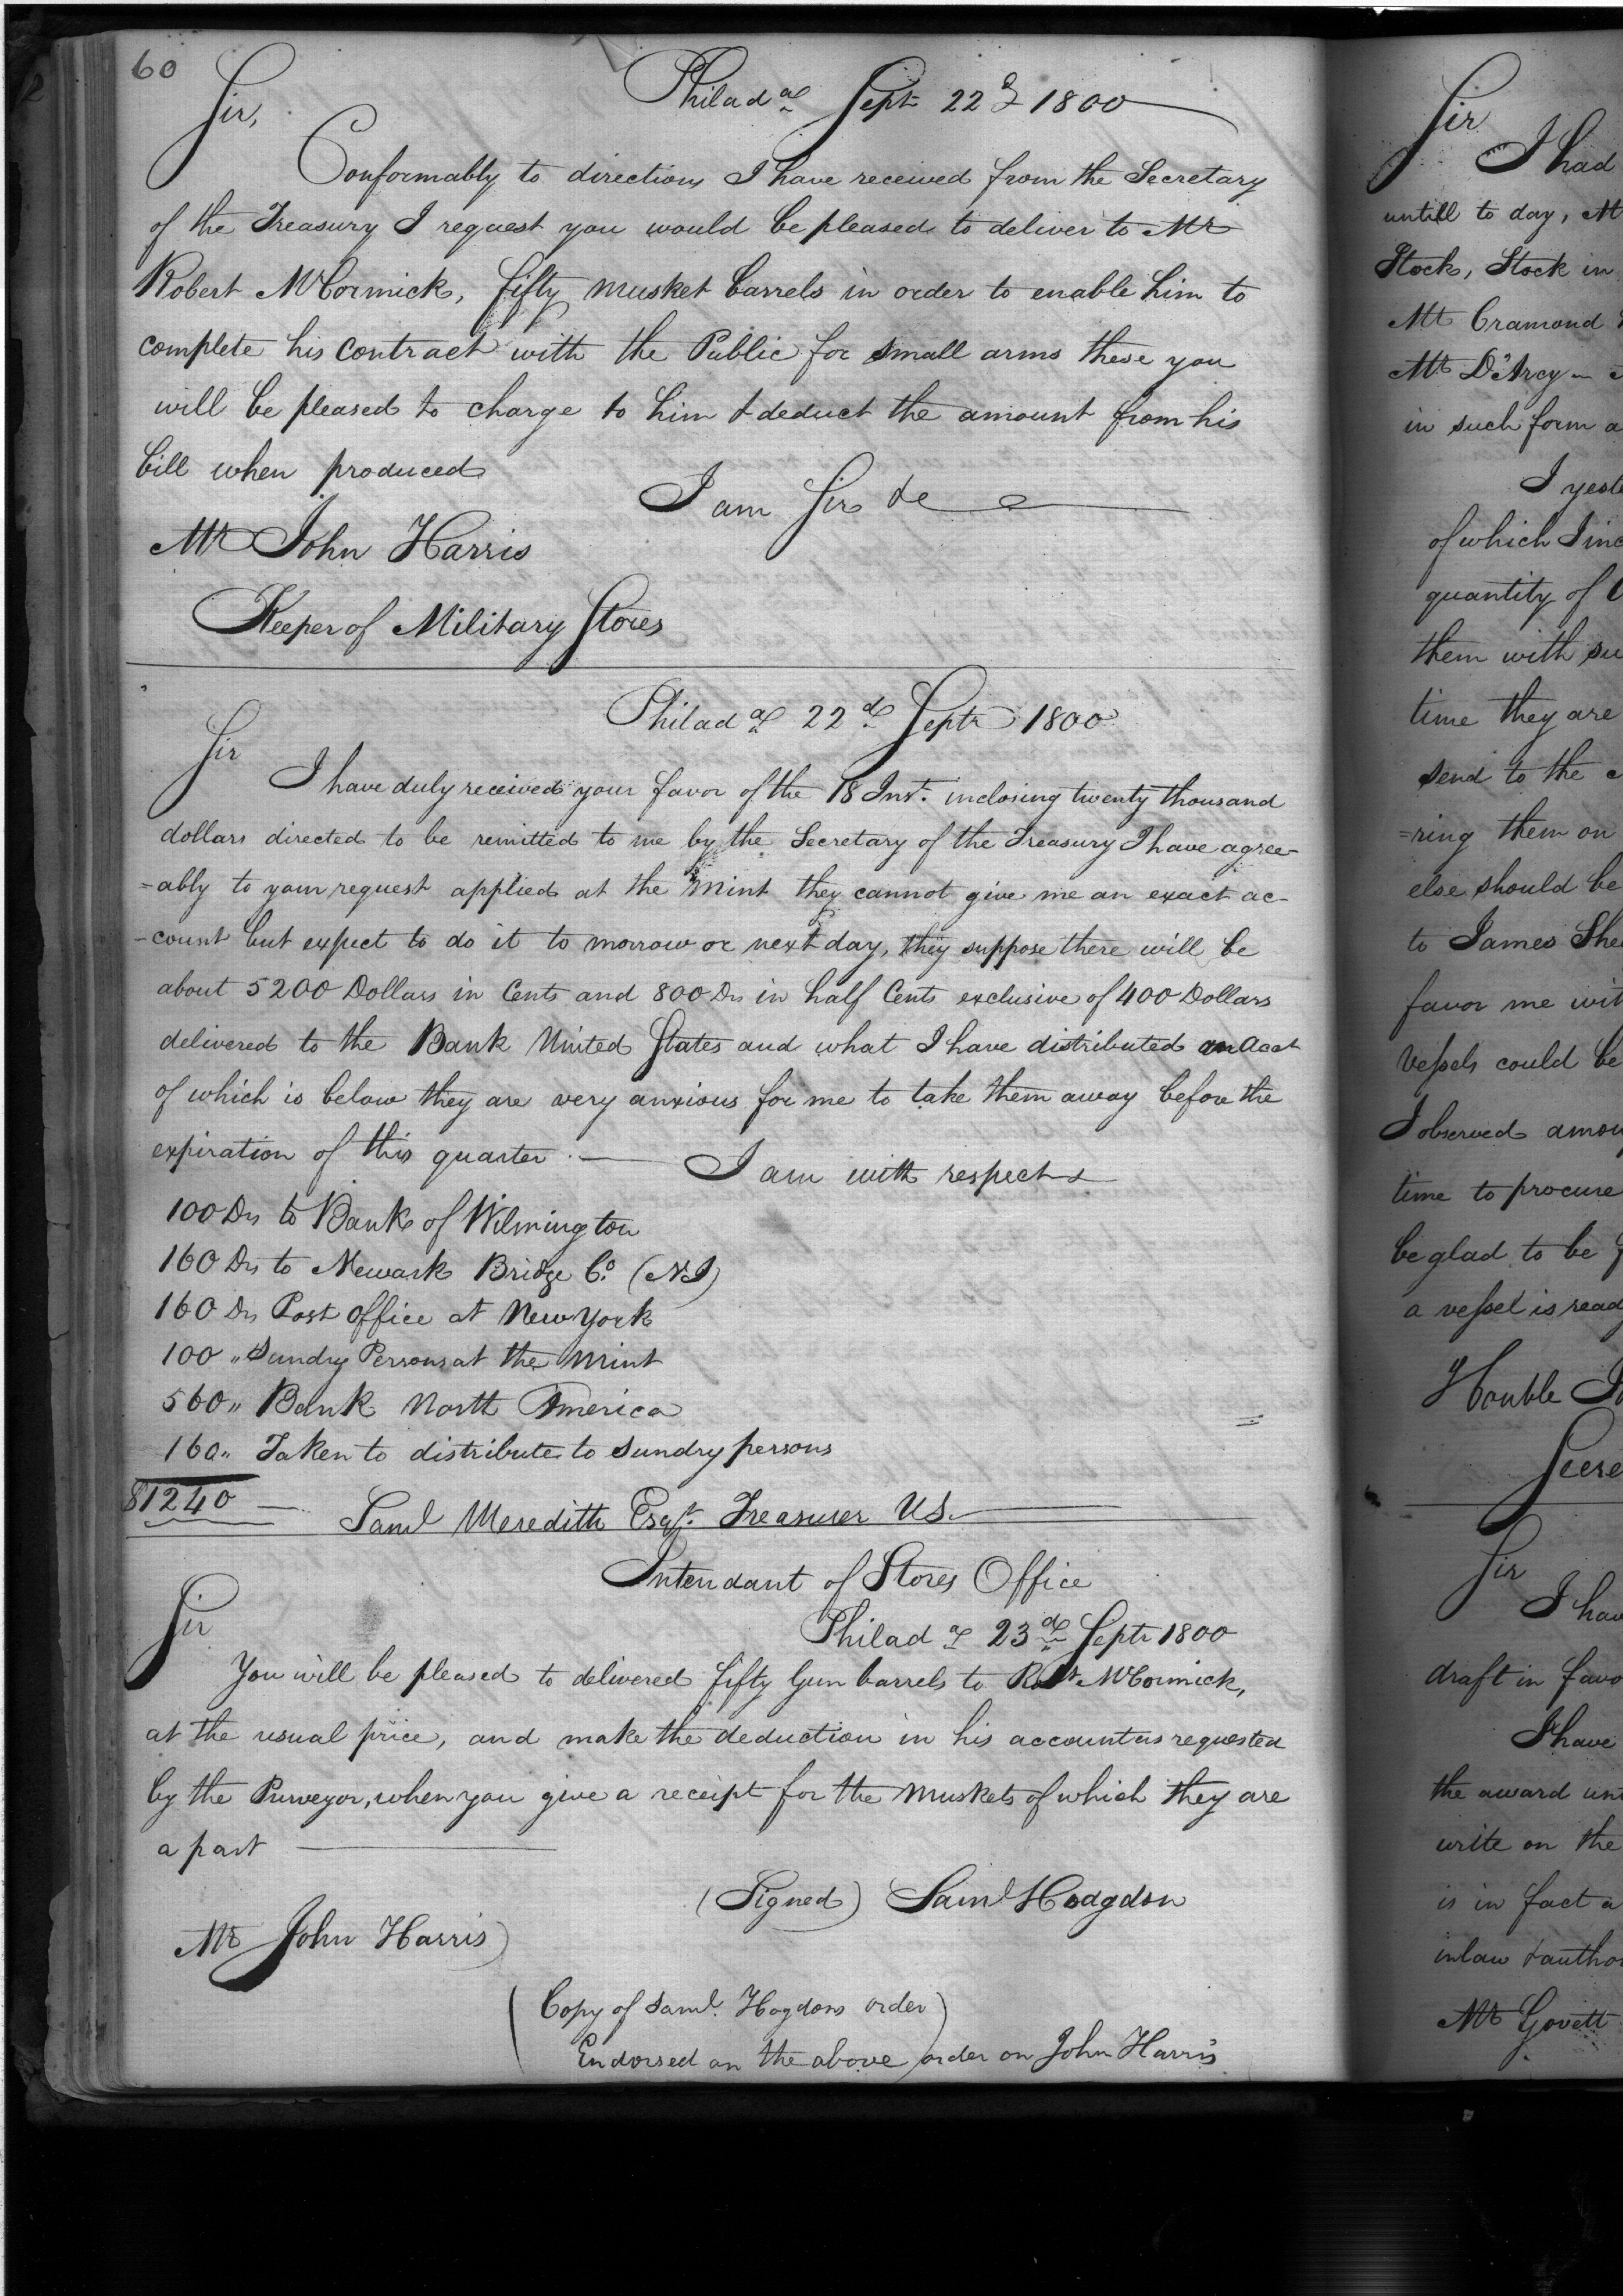 60
Philada Sept 22d 1800
Sir,
Conformably to directions I have received from the Secretary
of the Treasury I request you would be pleased to deliver to Mr
Robert McCormick, fifty musket barrels in order to enable him to
complete his contract with the Public for small arms these you
will be pleased to charge to him & deduct the amount from his
bill when produced
I am Sir &c
Mr John Harris
Keeper of Military Stores
Philada 22d Septr 1800
Sir
I have duly received your favor of the 18 Inst. inclosing twenty thousand
dollars directed to be remitted to me by the Secretary of the Treasury I have agree-
=ably to your request applied at the Mint they cannot give me an exact ac-
-count but expect to do it to morrow or next day, they suppose there will be
about 5200 Dollars in Cents and 800 Drs in half Cents exclusive of 400 Dollars
delivered to the Bank United States and what I have distributed an Acct
of which is below they are very anxious for me to take them away before the
expiration of this quarter.—
I am with respect &
100 Drs to Bank of Wilmington
160 Drs to Newark Bridge Co. (NJ)
160 Drs Post Office at New York
100 " Sundry Persons at the Mint
560 " Bank North America
160 " Taken to distribute to Sundry persons
$1240
Saml Meredith Esqr. Treasurer US.
Intendant of Stores Office
Philada 23d Septr 1800
Sir
You will be pleased to delivered fifty Gun barrels to Robt McCormick,
at the usual price, and make the deduction in his account as requested
by the Purveyor, when you give a receipt for the Muskets of which they are
a part
(Signed) Saml Hodgdon
Mr John Harris)
(Copy of Saml. Hogdons order)
Endorsed on the above order on John Harris
Sir
I had
untill to day, M
Stock, Stock in
Mr Cramond
Mr D'Arcy
in such form a
I yeste
of which I inc
quantity of
them with su
time they are
send to the
=ring them on
else should be
to James She
favor me wit
Vessels could be
I observed amou
time to procure
be glad to be
a vessel is read
Honble
Secre
Sir
I hav
draft in favo
I have
the award un
write on the
is in fact a
inlaw & autho
Mr Govett